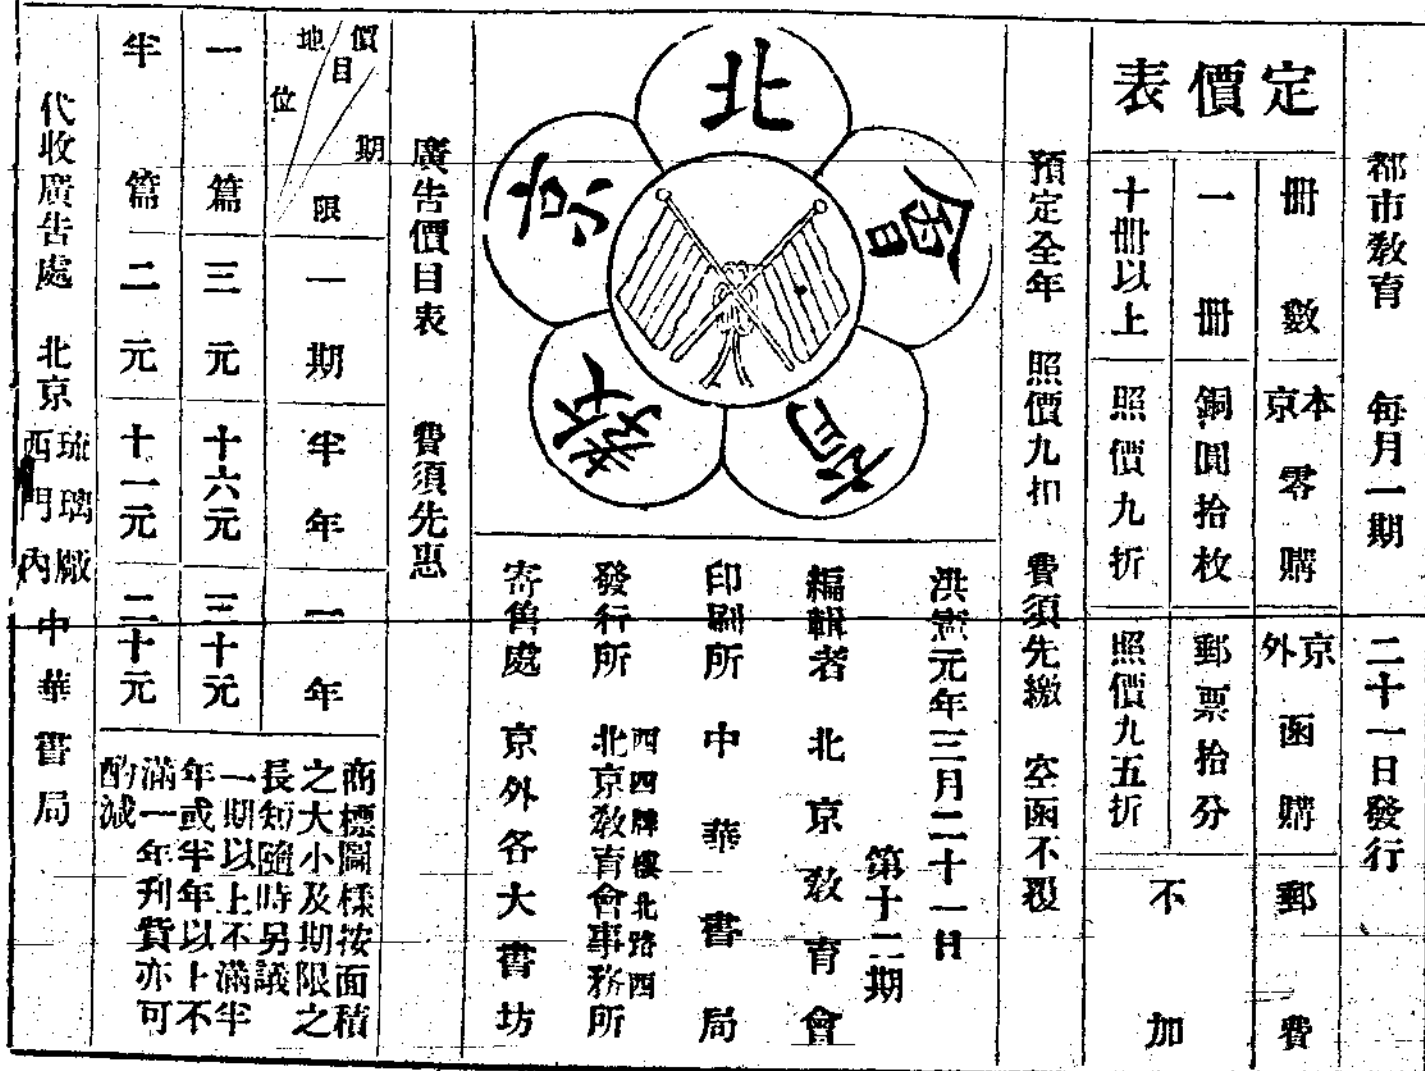 都市敎育　每月一期　二十一日發行
定價表
冊數　本京零購　京外函購　郵費
一冊　銅圓拾枚　郵票拾分　不加
十冊以上　照價九折　照價九五折
預定全年　照價九扣　費須先繳　空函不覆
北京敎育會
洪憲元年三月二十一日
第十二期
編輯者　北京敎育會
印刷所　中華書局
發行所　西四牌樓北路西　北京敎育會事務所
寄售處　京外各大書坊
廣告價目表　費須先惠
價目　地位　期限　一期　半年　一年
一篇　三元　十六元　三十元
半篇　二元　十一元　二十元
商標圖樣按面積
之大小及期限之
長短隨時另議
一期以上不滿半
年或半年以上不
滿一年刋費亦可
酌减
代收廣告處　北京　琉璃廠　西門內　中華書局